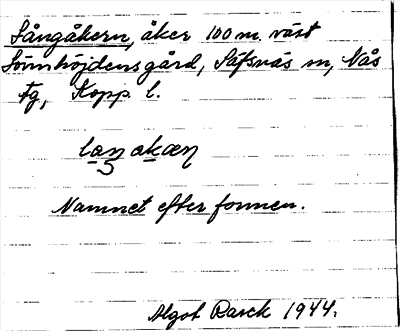 Långåkern, åker 100 m. väst
Sönnhöjdens gård, Säfsnäs sn, Nås
fg, Kopp. l.
Namnet efter formen.
Algot Rasck 1944.